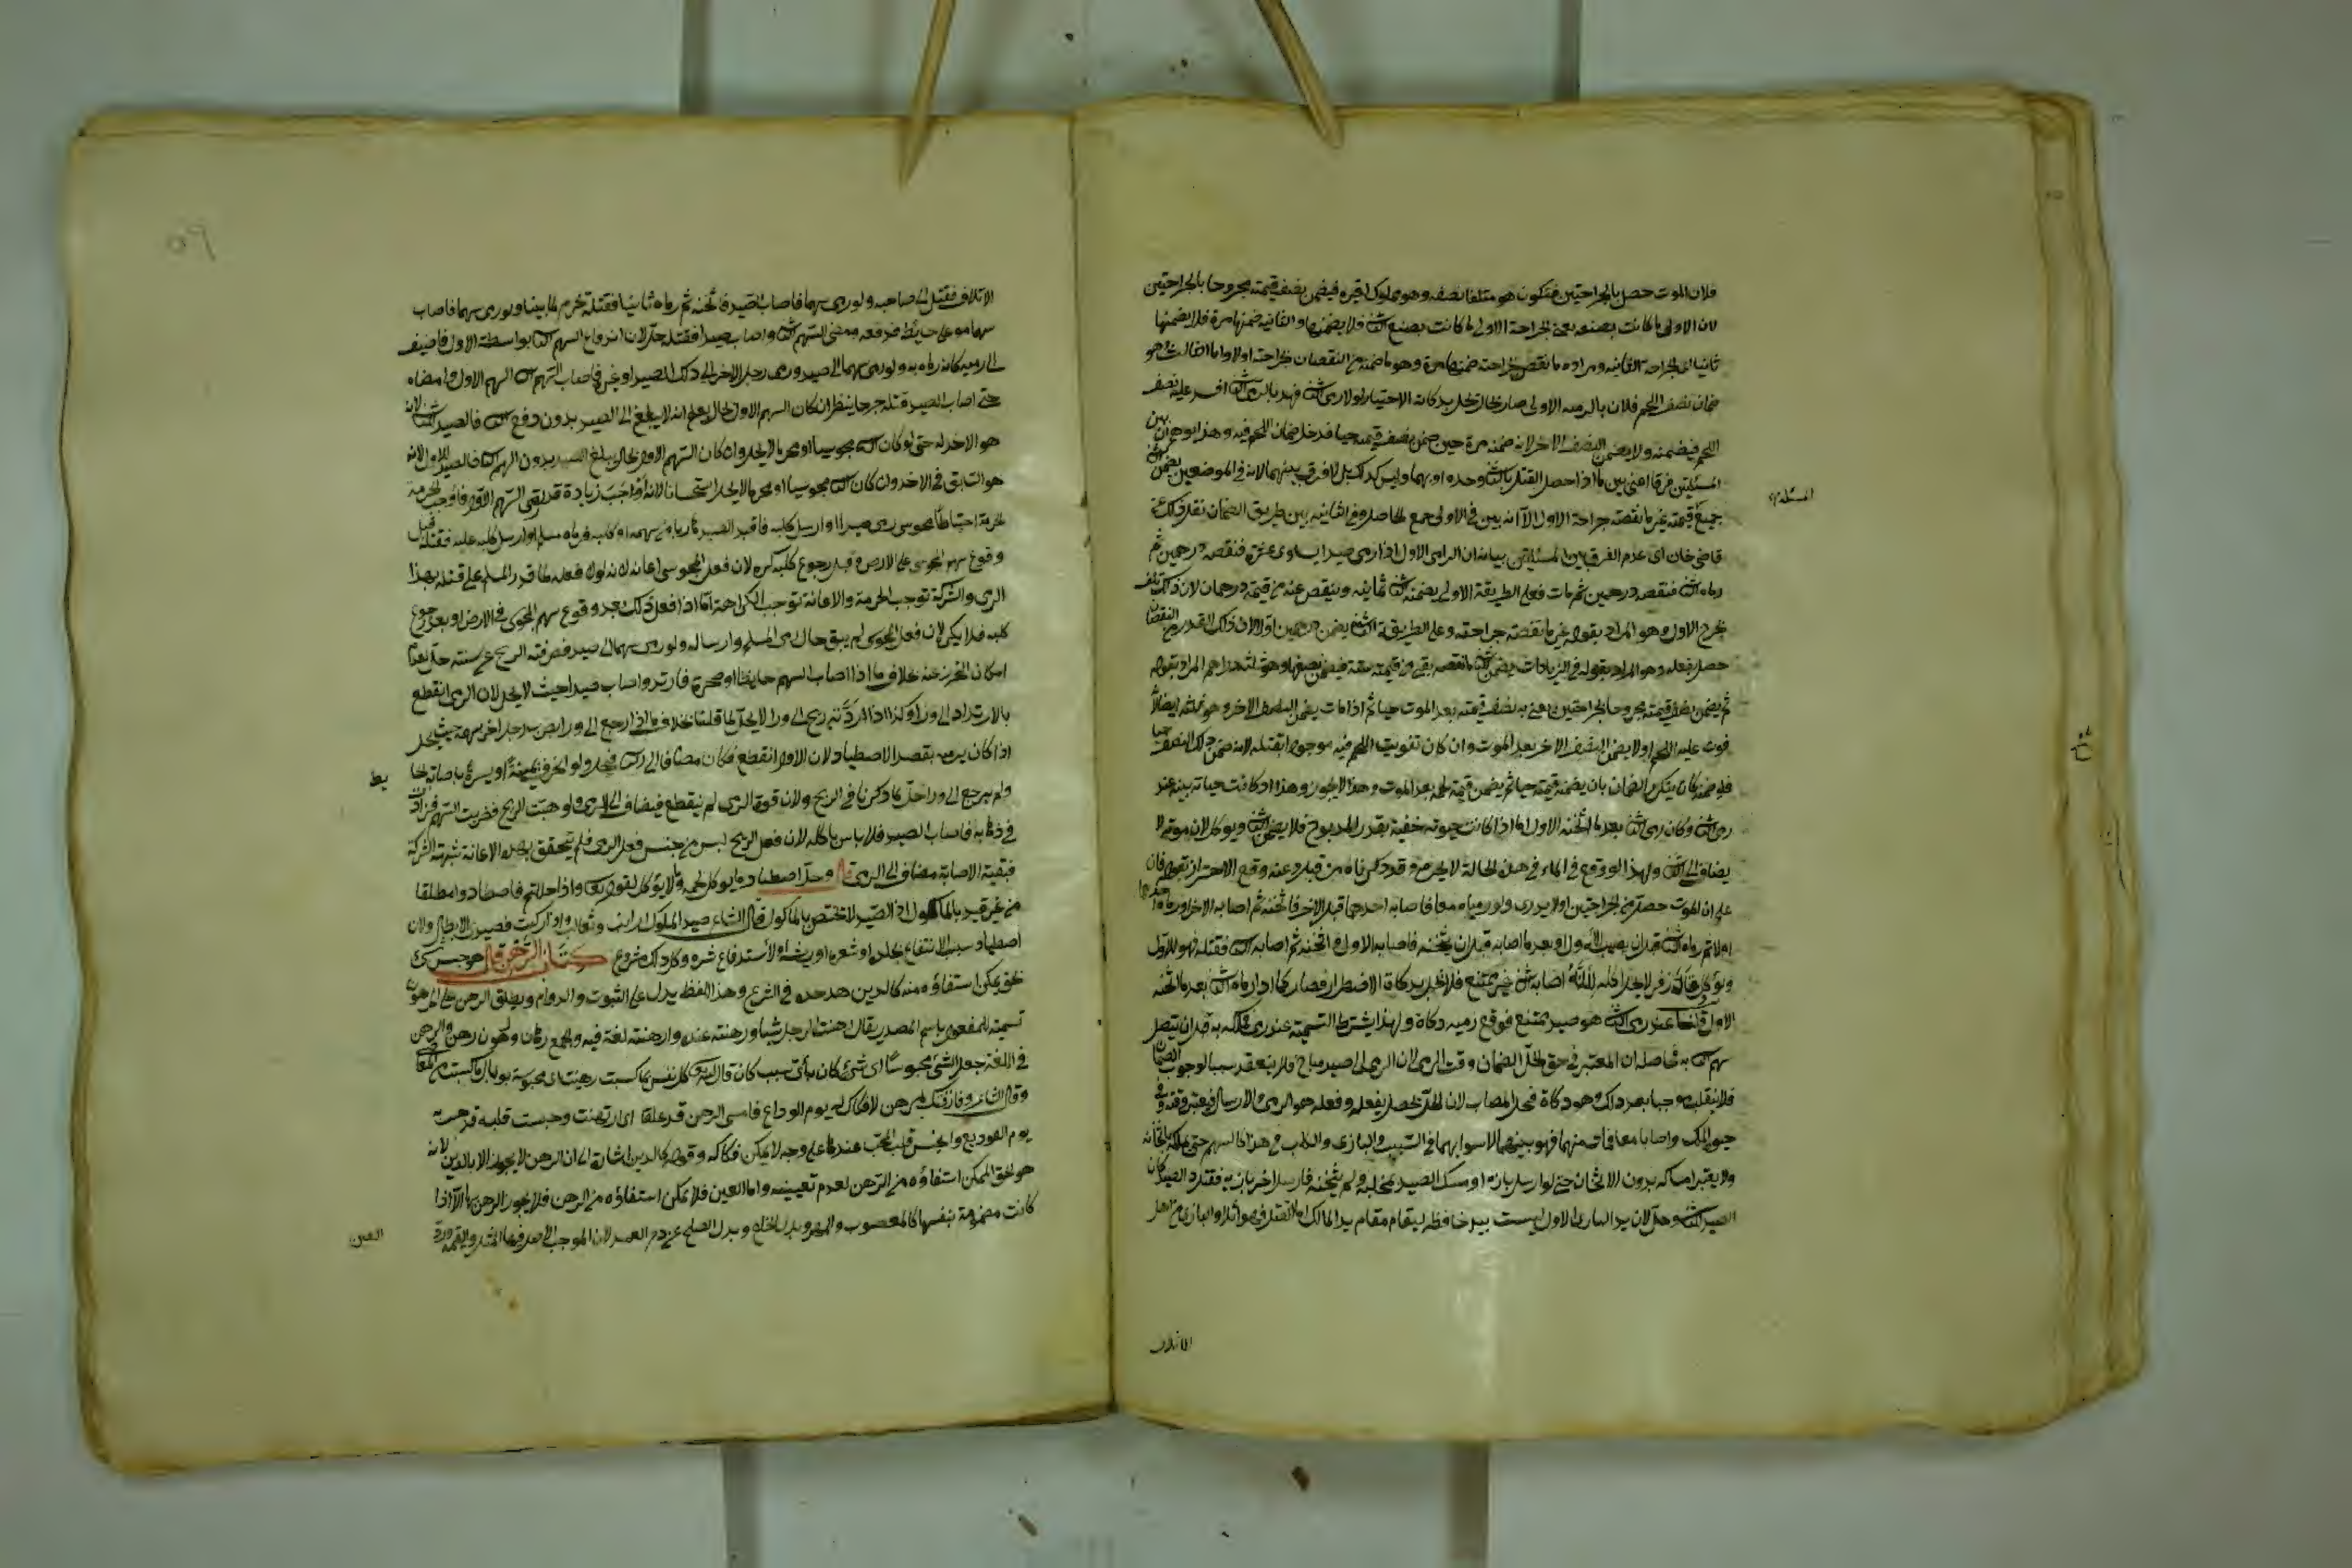 فلان الموت حصل بالجراحتين فيكون هو متلفا نصفه وهو مملوك لغيره فيضمن نصف قيمته مجروحا بالجراحتين
لان الاولى ما كانت بصنعه يعني الجراحة الاولى ما كانت بصنع الثاني فلا يضمنها والثانية ضمنها مرة فلا يضمنها
ثانيا اي الجراحة الثانية ومراده ما نقص بجراحته ضمنها مرة وهو ما ضمنه من النقصان بجراحته اولا واما الثالث وهو
ضمان نصف اللحم فلان بالرمية الاولى صار بحال يحل بذكاة الاختيار لولا رمى الثاني فهذا بالرمى الثاني افسد عليه نصف
اللحم فيضمنه ولا يضمن النصف الاخر لانه ضمنه مرة حين ضمن نصف قيمته حيا فدخل ضمان اللحم فيه وهذا يوهم ان بين
المسئلتين فرقا اعني بين ما اذا حصل القتل بالثاني وحده او بهما وليس كذلك بل لا فرق بينهما لانه في الموضعين يضمن
جميع قيمته غير ما نقصته جراحة الاول الا انه بين في الاولى جمع الحاصل وفي الثانية بين طريق الضمان نقل ذلك عن
قاضي خان اى عدم الفرق بين المسئلتين بيانه ان الرامى الاول اذا رمى صيدا يساوى عشرة فنقصه درهمين ثم
رماه الثاني فنقصه درهمين ثم مات فعلى الطريقة الاولى يضمنه الثاني ثمانية وينقص عنه من قيمته درهمان لان ذلك تلف
بجرح الاول وهو المراد بقوله غير ما نقصته جراحته وعلى الطريقة الثانية يضمن درهمين اولا لان ذلك القدر من النقصان
حصل بفعله وهو المراد بقوله في الزيادات يضمن الثاني ما نقصه بقي من قيمته ستة فيضمن نصفها وهو ثلثة دراهم المراد بقوله
ثم يضمن نصف قيمته مجروحا بالجراحتين
فوت عليه اللحم ولا يضمن النصف الاخر بعد الموت وان كان تفويت اللحم فيه موجودا بقتله لانه ضمن ذلك النصف حيا
فلو ضمنه كان يتكرر الضمان بان يضمنه قيمته حيا ثم يضمن قيمة لحمه بعد الموت وهذا لا يجوز وهذا اذا كانت حياته بينة عند
رمى الثاني وكان رمى الثاني بعد ما اثخنه الاول اما اذا كانت حيوته خفية بقدر المذبوح فلا يضمن الثاني ويؤكل لان موته لا
يضاف الى الثاني ولهذا لو وقع في الماء في هذه الحالة لا يحرم وقد ذكرناه من قبل وعنه وقع الاحتراز بقوله فان
علم ان الموت حصل من الجراحتين او لا يدرى ولو رمياه معا فاصابه احدهما قبل الاخر فاثخنه ثم اصابه الاخر او رماه احدهما
اولا ثم رماه الثاني قبل ان يصيبه الاول او بعد ما اصابه قبل ان يثخنه فاصابه الاول واثخنه ثم اصابه الثاني فقتله فهو للاول
ويؤكل وقال زفر لا يحل اكله لانه اصابه الثاني غير ممتنع فلا يحل بذكاة الاضطرار فصار كما اذا رماه الثاني بعد ما اثخنه
الاول قلنا عند رمى الثاني هو صيد ممتنع فوقع رميه ذكاة ولهذا يشترط التسمية عند رمى
سهم الثاني به فحاصله ان المعتبر في حق الحل والضمان وقت الرمى لان الرمى الى صيد مباح فلا ينعقد سببا لوجوب الضمان
فلا ينقلب موجبا بعد ذلك وهو ذكاة فيحل المصاب لان الحل يحصل بفعله وفعله هو الرمى والارسال فيعتبر وقته وفي
حق الملك واصابا معا فمات منهما فهو بينهما لاستوائهما في السبب والبازى والكلب في هذا كالسهم حتى يملكه باثخانه
ولا يعتبر امساكه بدون الاثخان حتى لو ارسل بازه او مسك الصيد بمخلبه ولم يثخنه فارسل اخر بازيه فقتله الصيد كان
الصيد للثاني وحل لان يد البازى الاول ليست بيد حافظة ليقام مقام يد المالك اما القتل فهو اتلاف والبازى من اهل
المسئلة
الاتلاف
الاتلاف فينقل الى صاحبه ولو رمى سهما فاصاب الصيد فاثخنه ثم رماه ثانيا فقتله حرم لما بينا ولو رمى سهما فاصاب
سهما موضوعا على حائط فرفعه فمضى السهم الثاني واصاب صيدا فقتله حل لان اندفاع السهم الثاني بواسطة الاول فاضيف
الى رميه كانه رماه به ولو رمى سهما الى صيد ورمى رجل اخر الى ذلك الصيد او غيره فاصاب السهم الثاني السهم الاول وامضاه
حتى اصاب الصيد وقتله جرحا ينظر ان كان السهم الاول بحال يعلم انه لا يبلغ الى الصيد بدون دفع الثاني فالصيد للثاني لانه
هو الاخذ له حتى لو كان الثاني مجوسيا او محرما لا يحل وان كان السهم الاول بحال يبلغ الصيد بدون السهم الثاني فالصيد للاول لانه
هو السابق في الاخذ وان كان الثاني مجوسيا او محرما لا يحل استحسانا لانه اوجب زيادة قوة في السهم الاول فاوجب الحرمة
احتياطا مجوسى رمى صيدا او ارسل كلبه فاقبل الصيد هاربا من سهمه او كلبه فرماه مسلم او ارسل كلبه عليه فقتله قبل
وقوع سهم المجوسى على الارض وقبل رجوع كلبه كره لان فعل المجوسى اعانة لانه لولا فعله لما قدر المسلم على قتله بهذا
الرمى والشركة توجب الحرمة والاعانة توجب الكراهة اما اذا فعل ذلك بعد وقوع سهم المجوسى في الارض او بعد رجوع
كلبه فلا يكره لان فعل المجوسى لم يبق حال رمى المسلم وارساله ولو رمى سهما الى صيد فصرفته الريح عن سننه حل لعدم
امكان التحرز عنه بخلاف ما اذا اصاب السهم حائطا او صخرة فارتد واصاب صيدا حيث لا يحل لان الرمى انقطع
بالارتداد الى وراء وكذا اذا ردته ريح الى وراء لا يحل لما قلنا بخلاف ما اذا رجع الى وراء
اذا كان يرميه بقصد الاصطياد لان الاول انقطع فكان مضافا الى الثاني فيحل ولو انحرف يمنة او يسرة باصابة الحائط
ولم يرجع الى وراء حل كما ذكرنا في الريح ولان قوة الرمى لم ينقطع فيضاف الى الرمى ولو هبت الريح فضربت السهم فزادت
في ذهابه فاصاب الصيد فلا باس باكله لان فعل الريح ليس من جنس فعل الرمى فلم يتحقق بهذه الاعانة شبهة الشركة
فبقيت الاصابة مضاف الى الرمى قال وحل اصطياد ما يؤكل لحمه وما لا يؤكل لقوله تعالى واذا حللتم فاصطادوا مطلقا
من غير قيد بالماكول اذ الصيد لا تختص بالماكول قال الشاعر صيد الملوك ارانب وثعالب واذا ركبت فصيدى الابطال ولان
اصطياده سبب الانتفاع بجلده او شعره او ريشه او لاستدفاع شره وكل ذلك مشروع كتاب الرهن قال هو حبس شئ
بحق يمكن استيفاؤه منه كالدين هذا حده في الشرع وهذا اللفظ يدل على الثبوت والدوام ويطلق الرهن على المرهون
تسمية للمفعول باسم المصدر يقال رهنت الرجل شيئا ورهنته عنده وارهنته لغة فيه والجمع رهان ورهون رهن والرهن
في اللغة جعل الشئ محبوسا اى شئ كان باى سبب كان قال الله تعالى كل نفس بما كسبت رهينة اى محبوسة بوبال ما كسبت من المعاصى
وقال الشاعر وفارقتك برهن لا فكاك له يوم الوداع فامسى الرهن قد غلقا اى ارتهنت وحبست قلبه فذهبت به
يوم التوديع واحتبس قلب المحب عندها على وجه لا يمكن فكاكه وقوله كالدين اشارة الى ان الرهن لا يجوز الا بالدين لانه
هو الحق الممكن استيفاؤه من الرهن لعدم تعيينه واما العين فلا يمكن استيفاؤه من الرهن فلا يجوز الرهن بها الا اذا
كانت مضمونة بنفسها كالمغصوب والمهر وبدل الخلع وبدل الصلح عن دم العمد لان الموجب الاصلى فيها المثل والقيمة
العين
٥٩